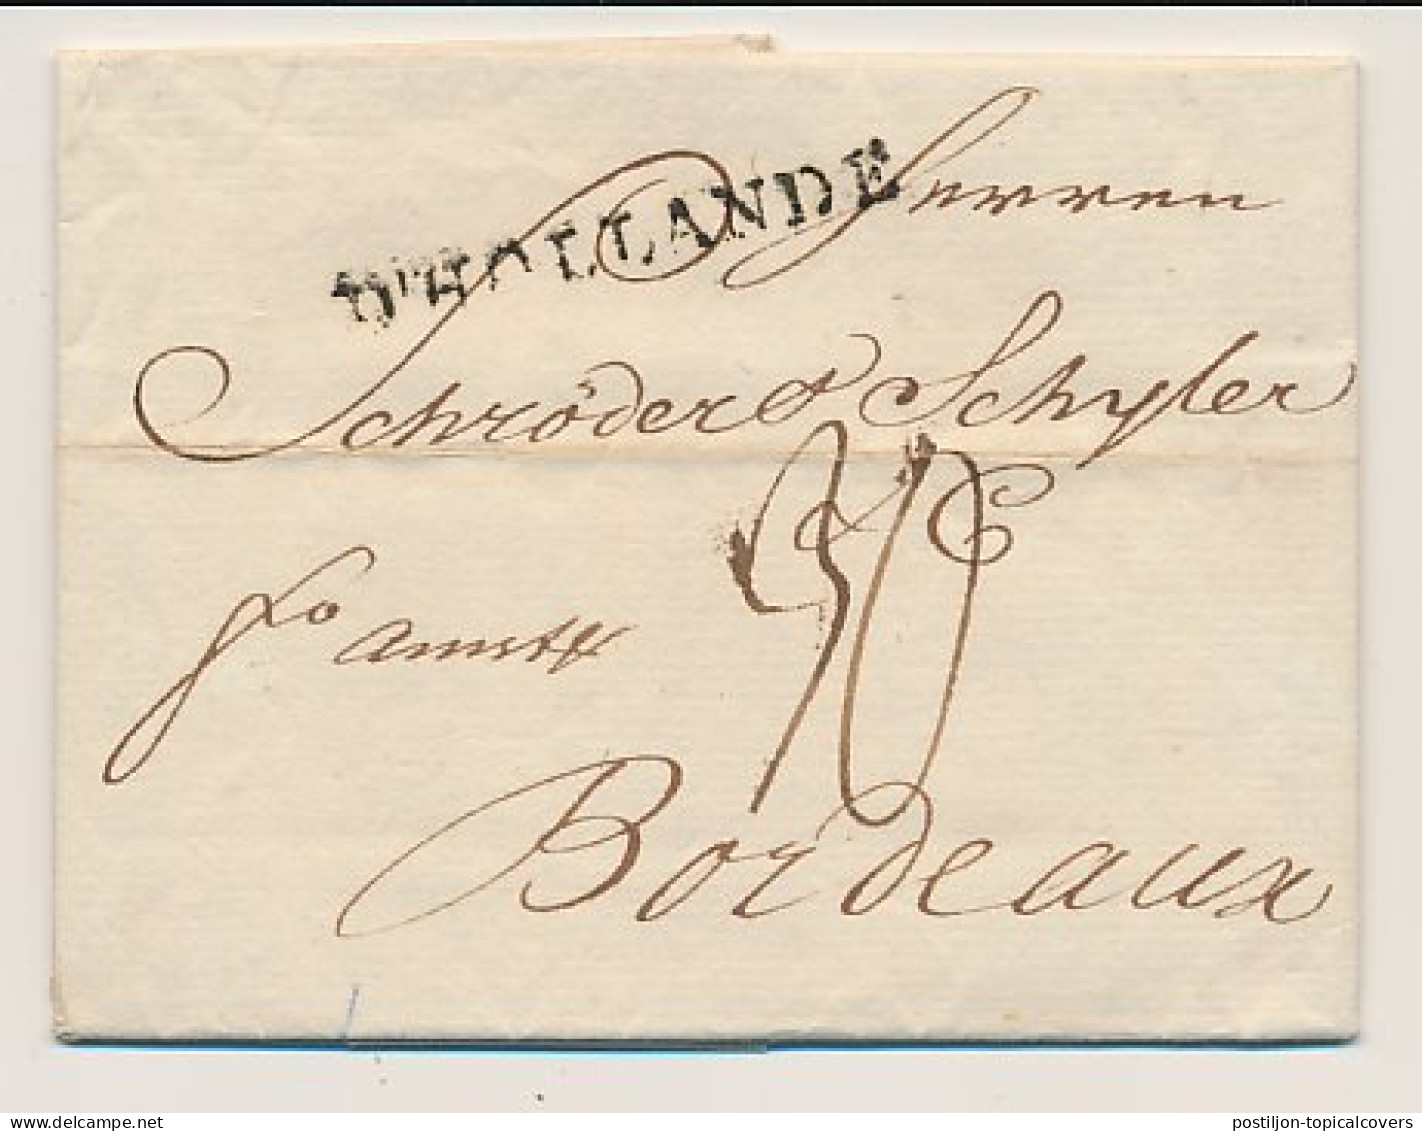 D'HOLLANDE
Herren
Schröder & Schyler
& C
30
fro amst
Bordeaux
www.delcampe.net
postiljon-topicalcovers